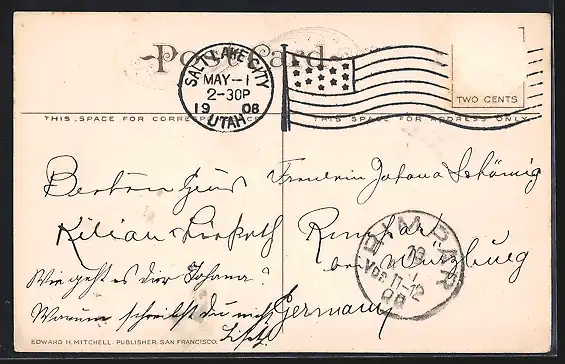 Post Card
SALT LAKE CITY
MAY-1
2-30P
1908
UTAH
TWO CENTS
THIS SPACE FOR CORRESPONDENCE
THIS SPACE FOR ADDRESS ONLY
Besten Gruss
Kilian
Wie geht es dir Johana?
Warum schreibst du nicht
Fraulein Johana
Rimpar
bei Würzburg
Germany
RIMPAR
VOR. 11-12
08
EDWARD H. MITCHELL, PUBLISHER, SAN FRANCISCO.